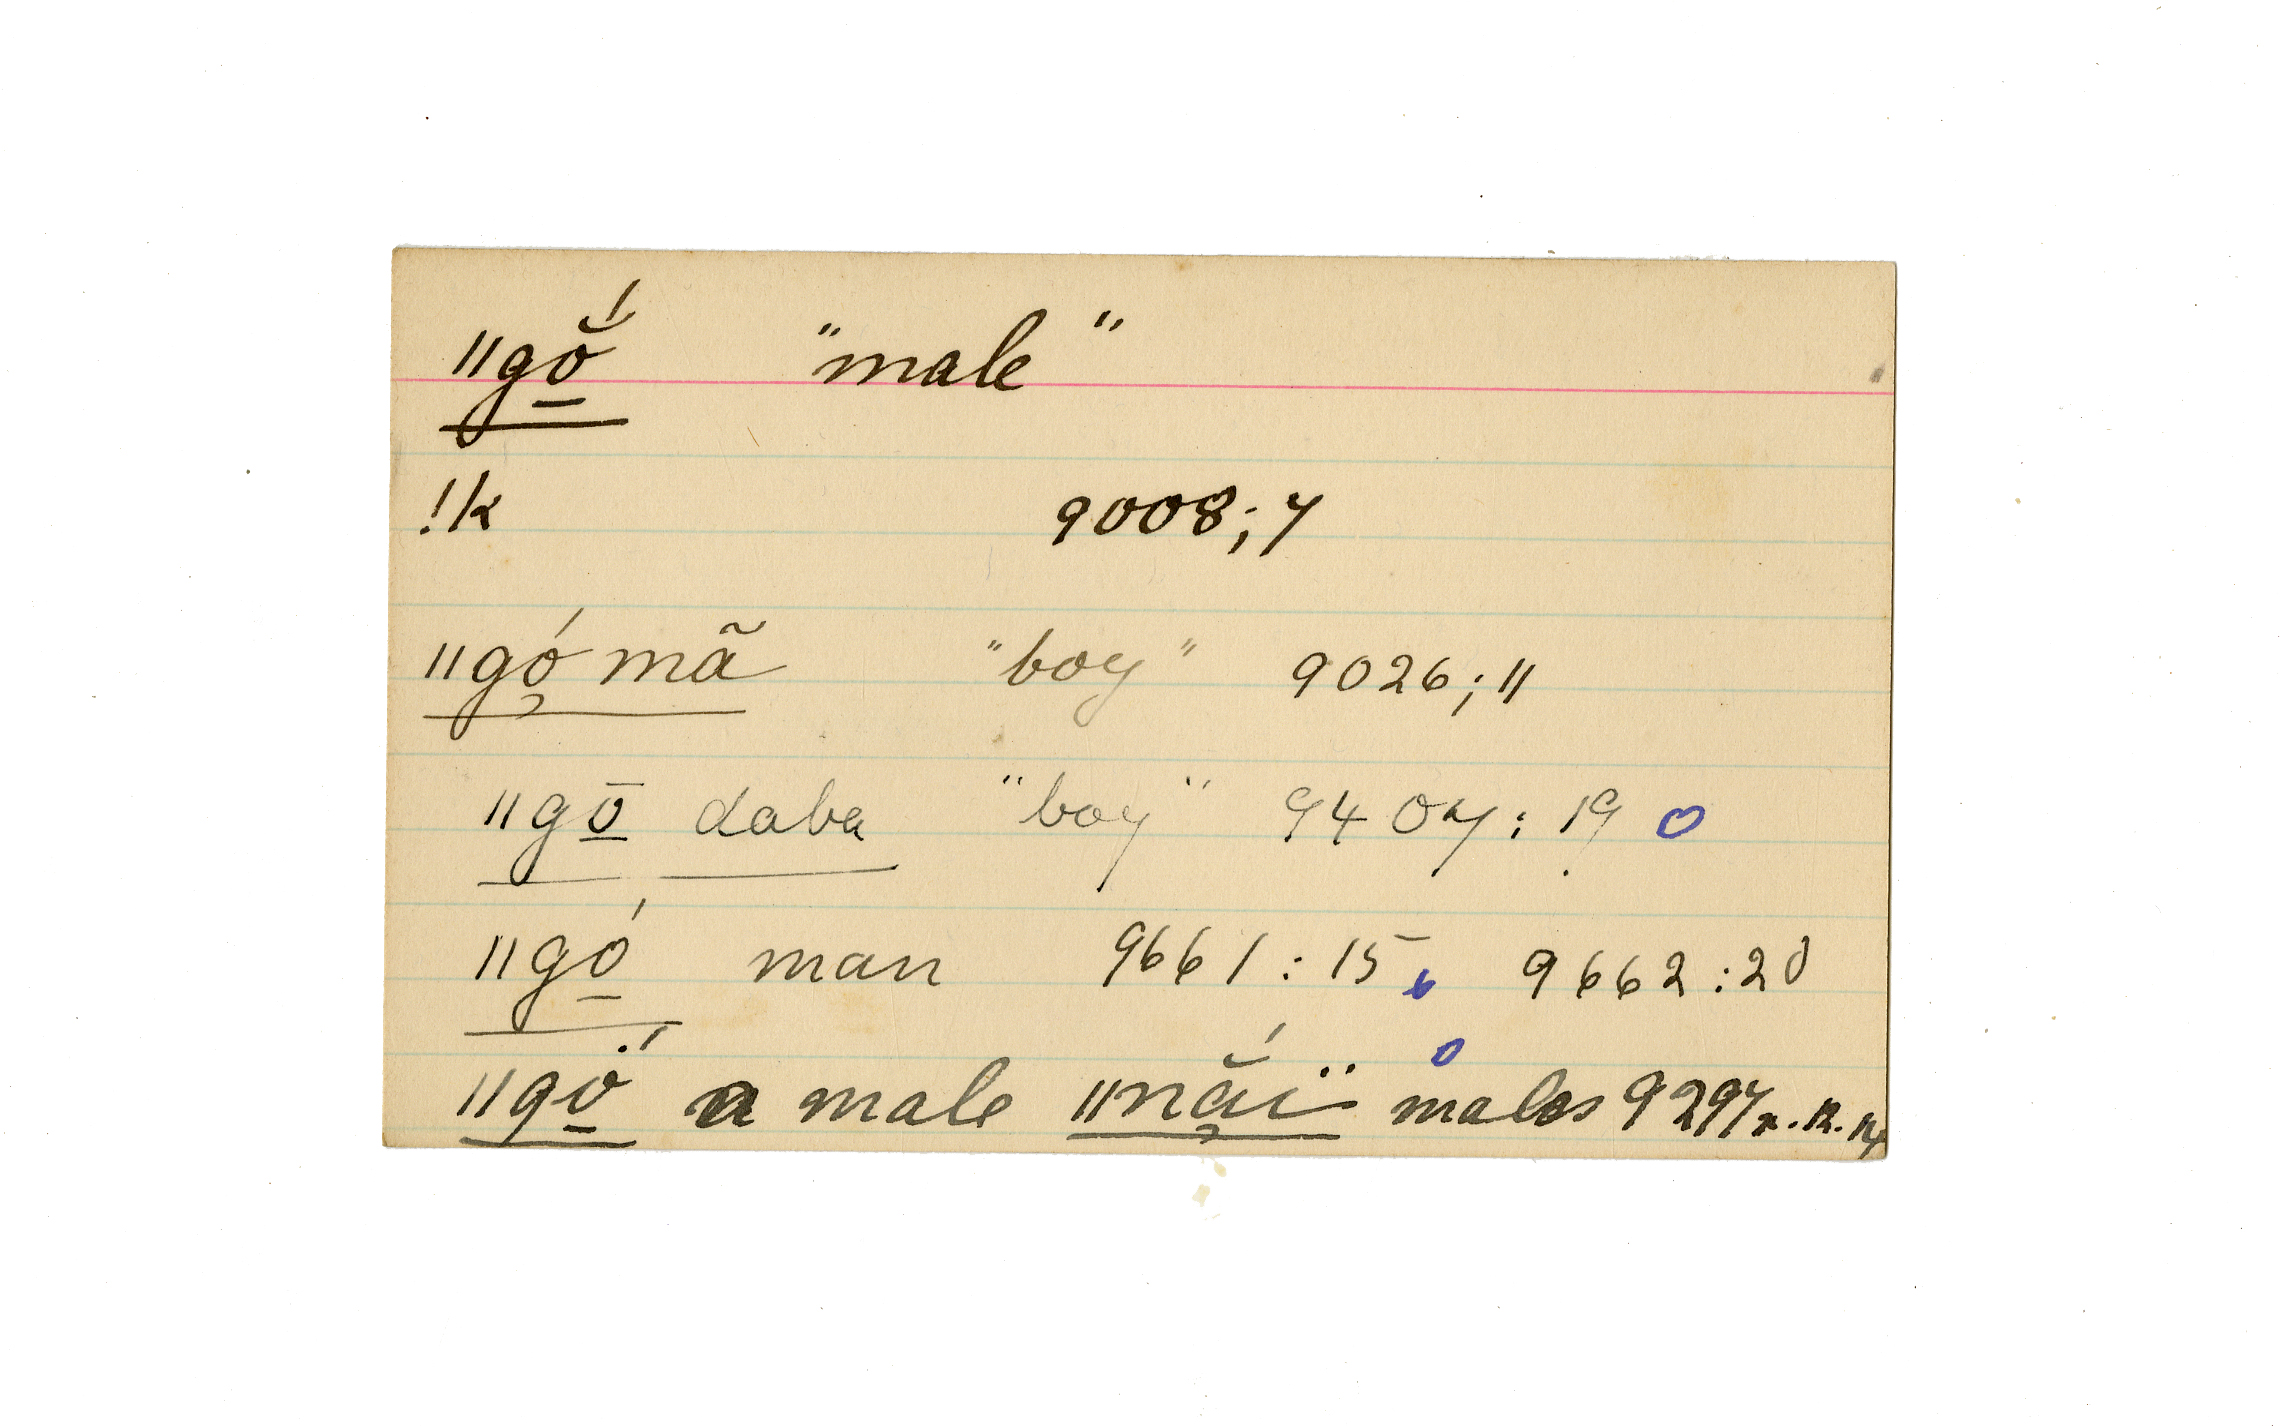 ǁgō̱̆́ "male"
!k 9008; 7
ǁgó̜ mã "boy" 9026; 11
ǁgō̱ daba "boy" 9407: 19 o
ǁgó̱ man 9661: 15 9662: 20
ǁgȯ̱́ a male ǁnắ̜ï males 9297